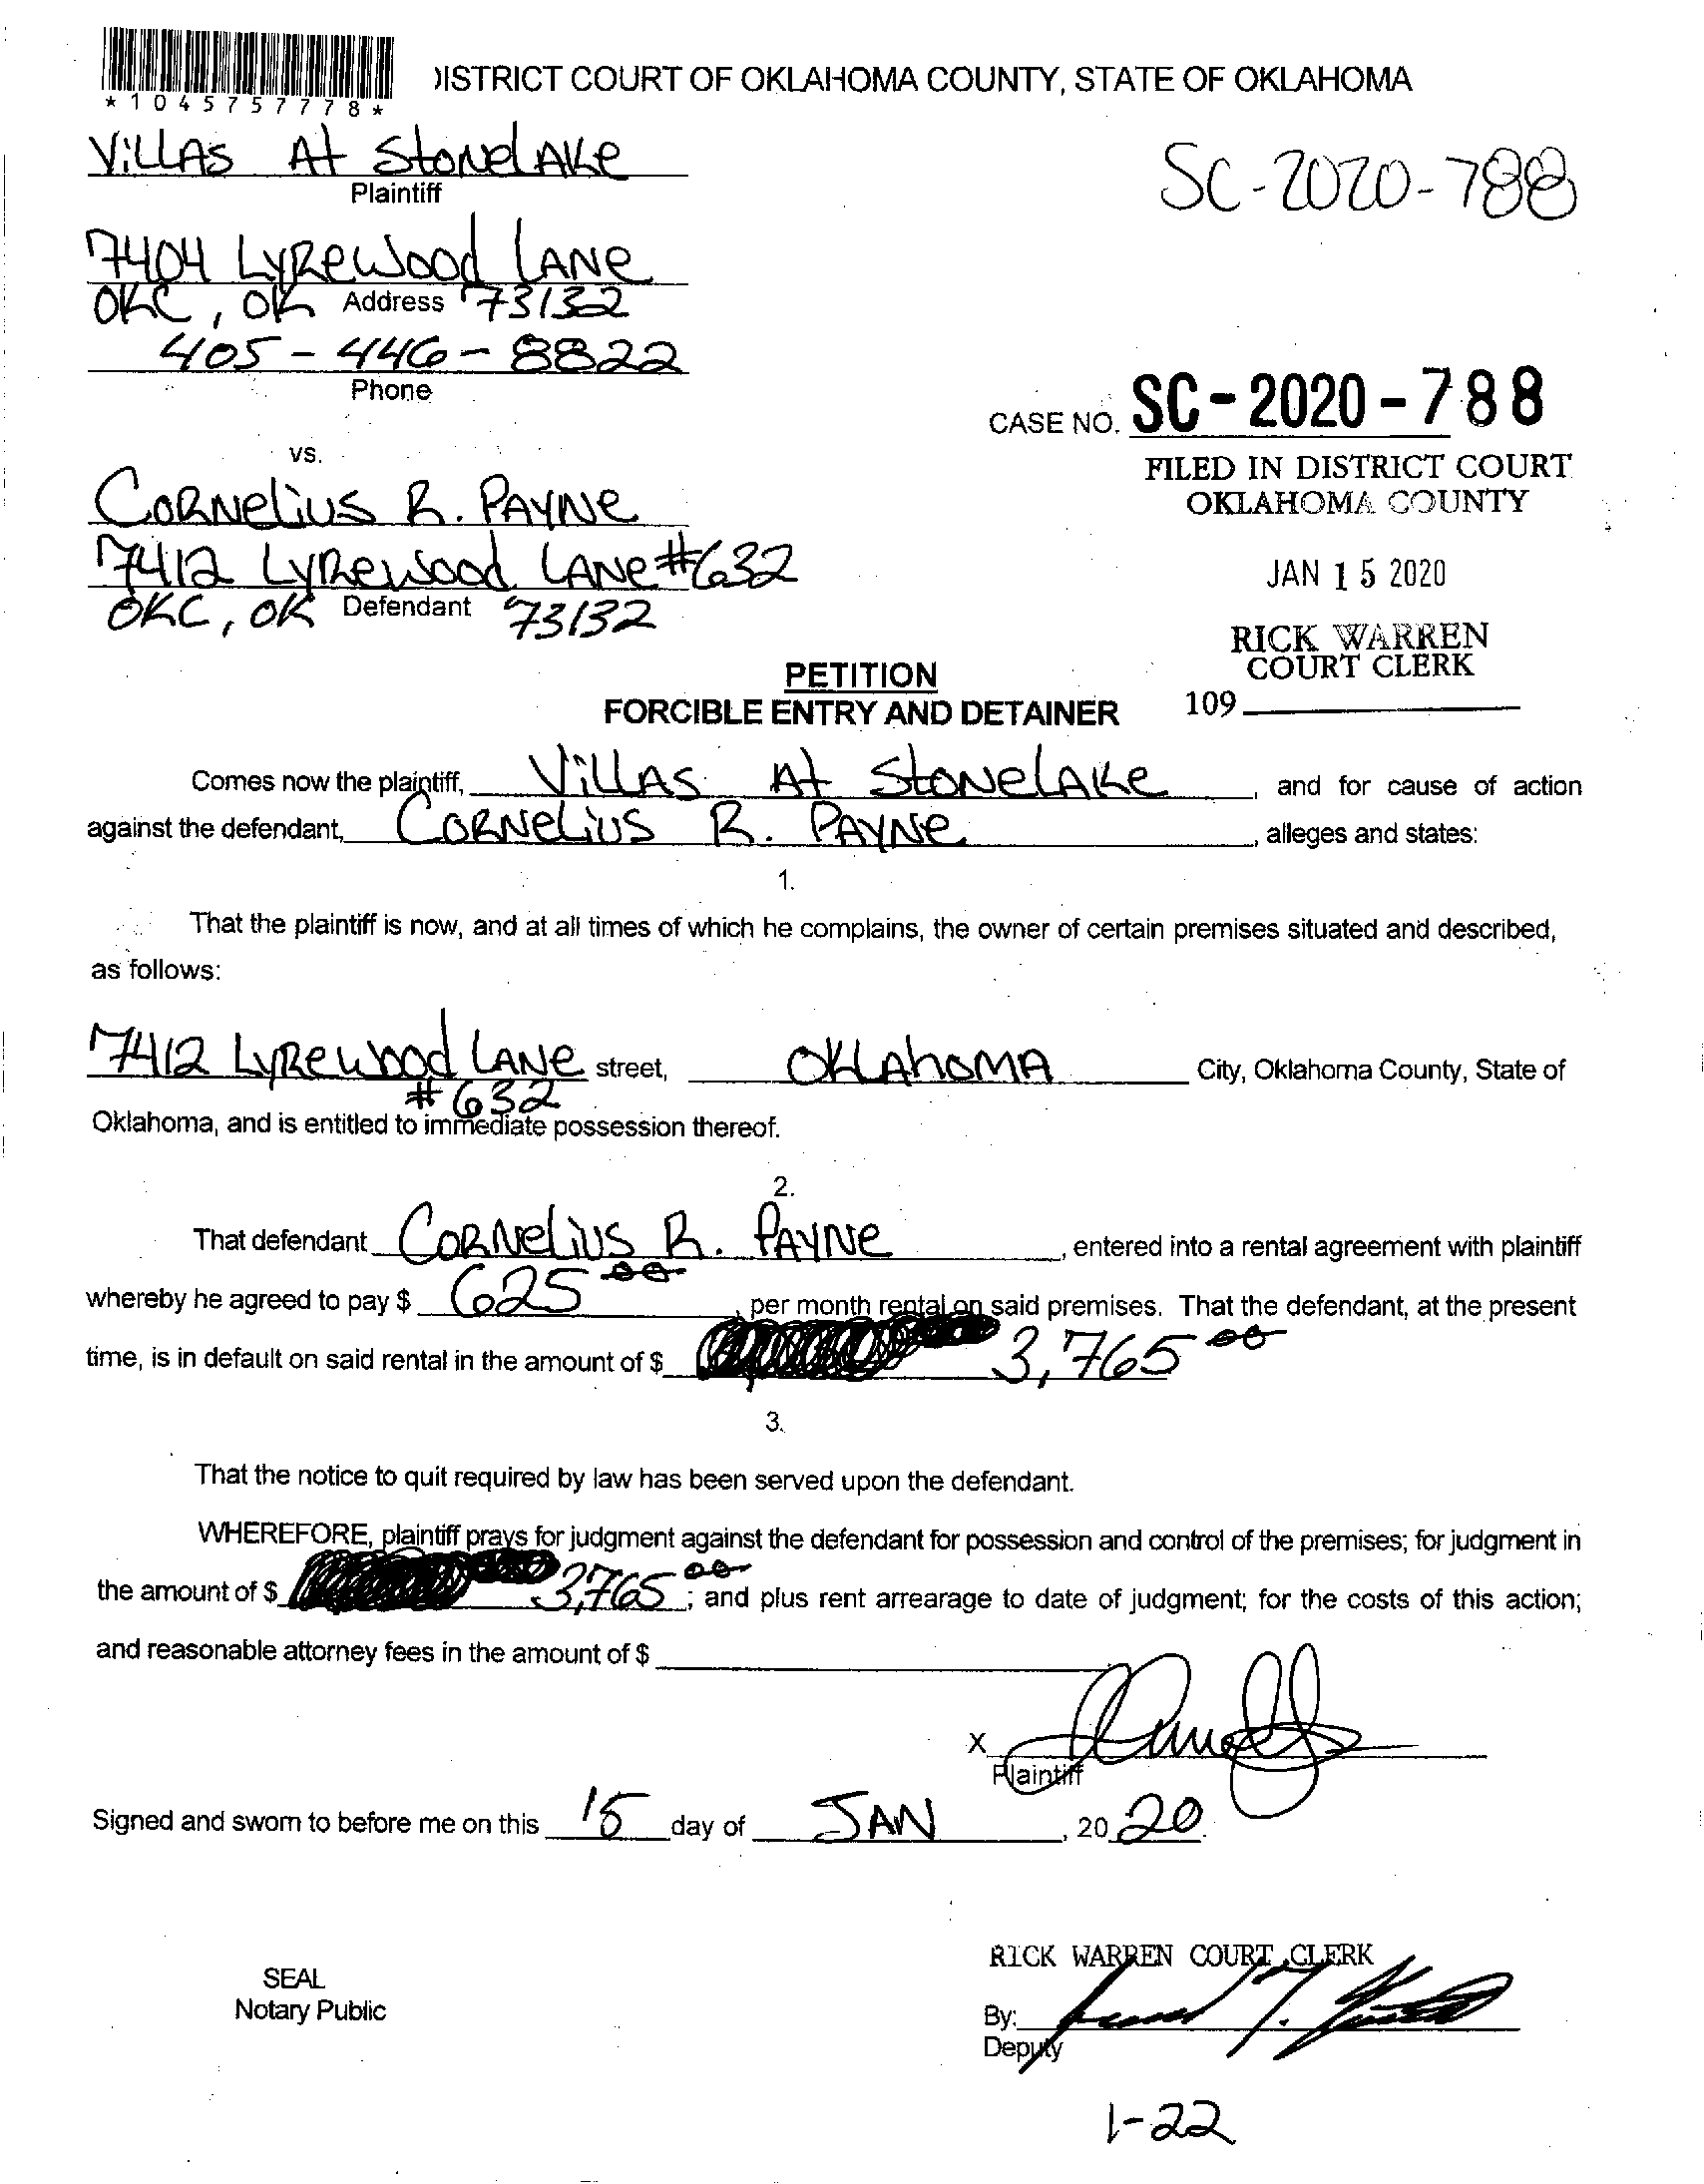 *1045757778*
DISTRICT COURT OF OKLAHOMA COUNTY, STATE OF OKLAHOMA
VILLAS At StoNelAKe
Plaintiff
SC-2020-788
7404 LyRewood LANe
OKC, OK Address 73132
405-446-8822
Phone
CASE NO. SC-2020-788
vs.
FILED IN DISTRICT COURT
OKLAHOMA COUNTY
CORNeLiUS R. PAYNe
7412 LyRewood LANe #632
JAN 15 2020
OKC, OK Defendant 73132
RICK WARREN
COURT CLERK
PETITION
109
FORCIBLE ENTRY AND DETAINER
Comes now the plaintiff, ViLLAS At StoNelAKe, and for cause of action
against the defendant, CORNeLiUS R. PAYNe, alleges and states:
1.
That the plaintiff is now, and at all times of which he complains, the owner of certain premises situated and described,
as follows:
7412 LyRewood LANe street, OKLAhOMA City, Oklahoma County, State of
#632
Oklahoma, and is entitled to immediate possession thereof.
2.
That defendant CORNeLiUS R. PAYNe, entered into a rental agreement with plaintiff
whereby he agreed to pay $ 625 00, per month rental on said premises. That the defendant, at the present
time, is in default on said rental in the amount of $ 3,765 00
3.
That the notice to quit required by law has been served upon the defendant.
WHEREFORE, plaintiff prays for judgment against the defendant for possession and control of the premises; for judgment in
the amount of $ 3,765 00; and plus rent arrearage to date of judgment; for the costs of this action;
and reasonable attorney fees in the amount of $
X
Plaintiff
Signed and sworn to before me on this 15 day of JAN, 20 20.
RICK WARREN COURT CLERK
SEAL
Notary Public
By:
Deputy
1-22